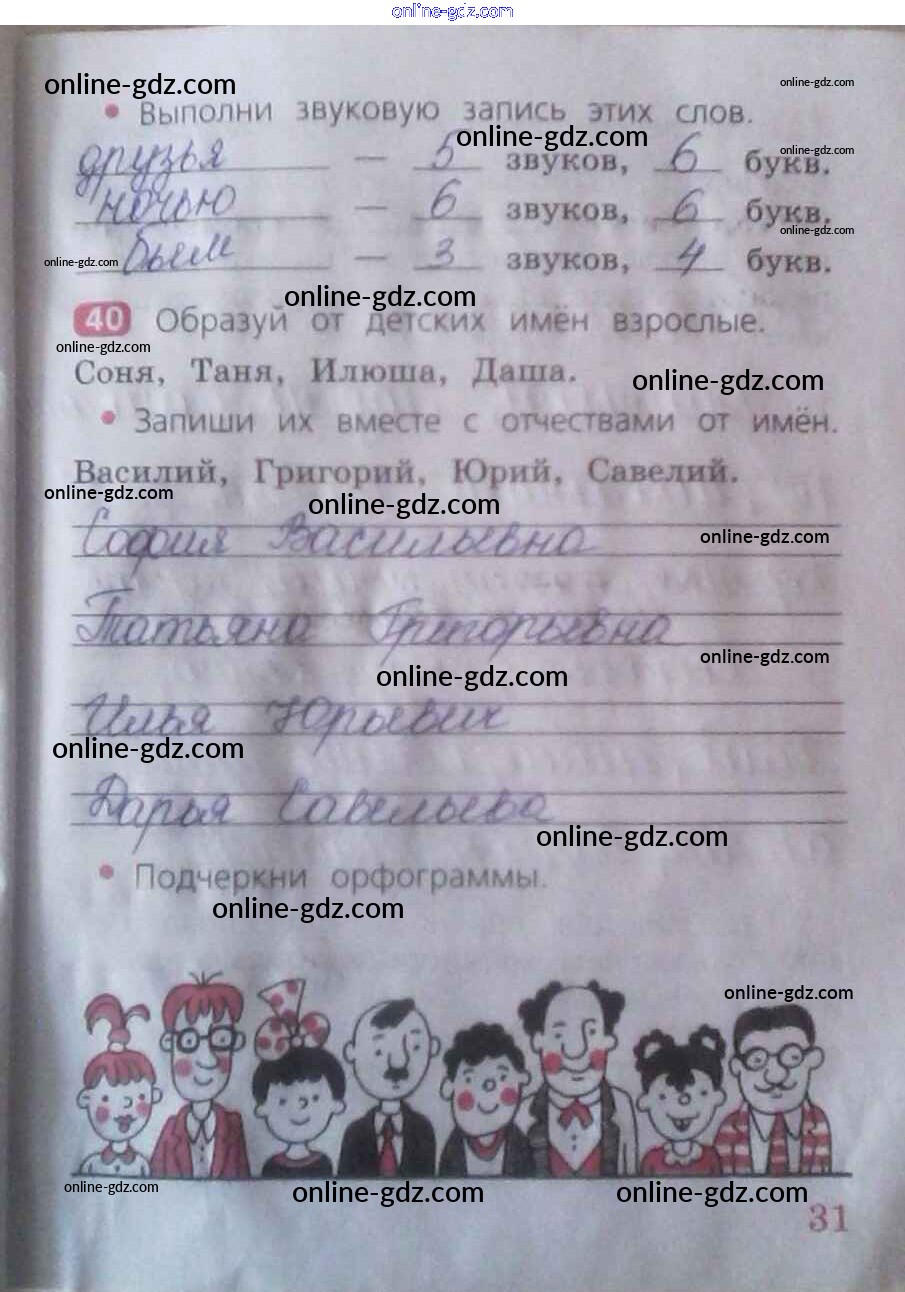 online-gdz.com
online-gdz.com
online-gdz.com
• Выполни звуковую запись этих слов.
online-gdz.com
online-gdz.com
друзья — 5 звуков, 6 букв.
ночью — 6 звуков, 6 букв.
online-gdz.com
online-gdz.com
бьем — 3 звуков, 4 букв.
online-gdz.com
40 Образуй от детских имён взрослые.
online-gdz.com
Соня, Таня, Илюша, Даша.
online-gdz.com
• Запиши их вместе с отчествами от имён.
Василий, Григорий, Юрий, Савелий.
online-gdz.com
online-gdz.com
София Васильевна
online-gdz.com
Татьяна Григорьевна
online-gdz.com
online-gdz.com
Илья Юрьевич
online-gdz.com
Дарья Савельева
online-gdz.com
• Подчеркни орфограммы.
online-gdz.com
online-gdz.com
online-gdz.com
online-gdz.com
online-gdz.com
31